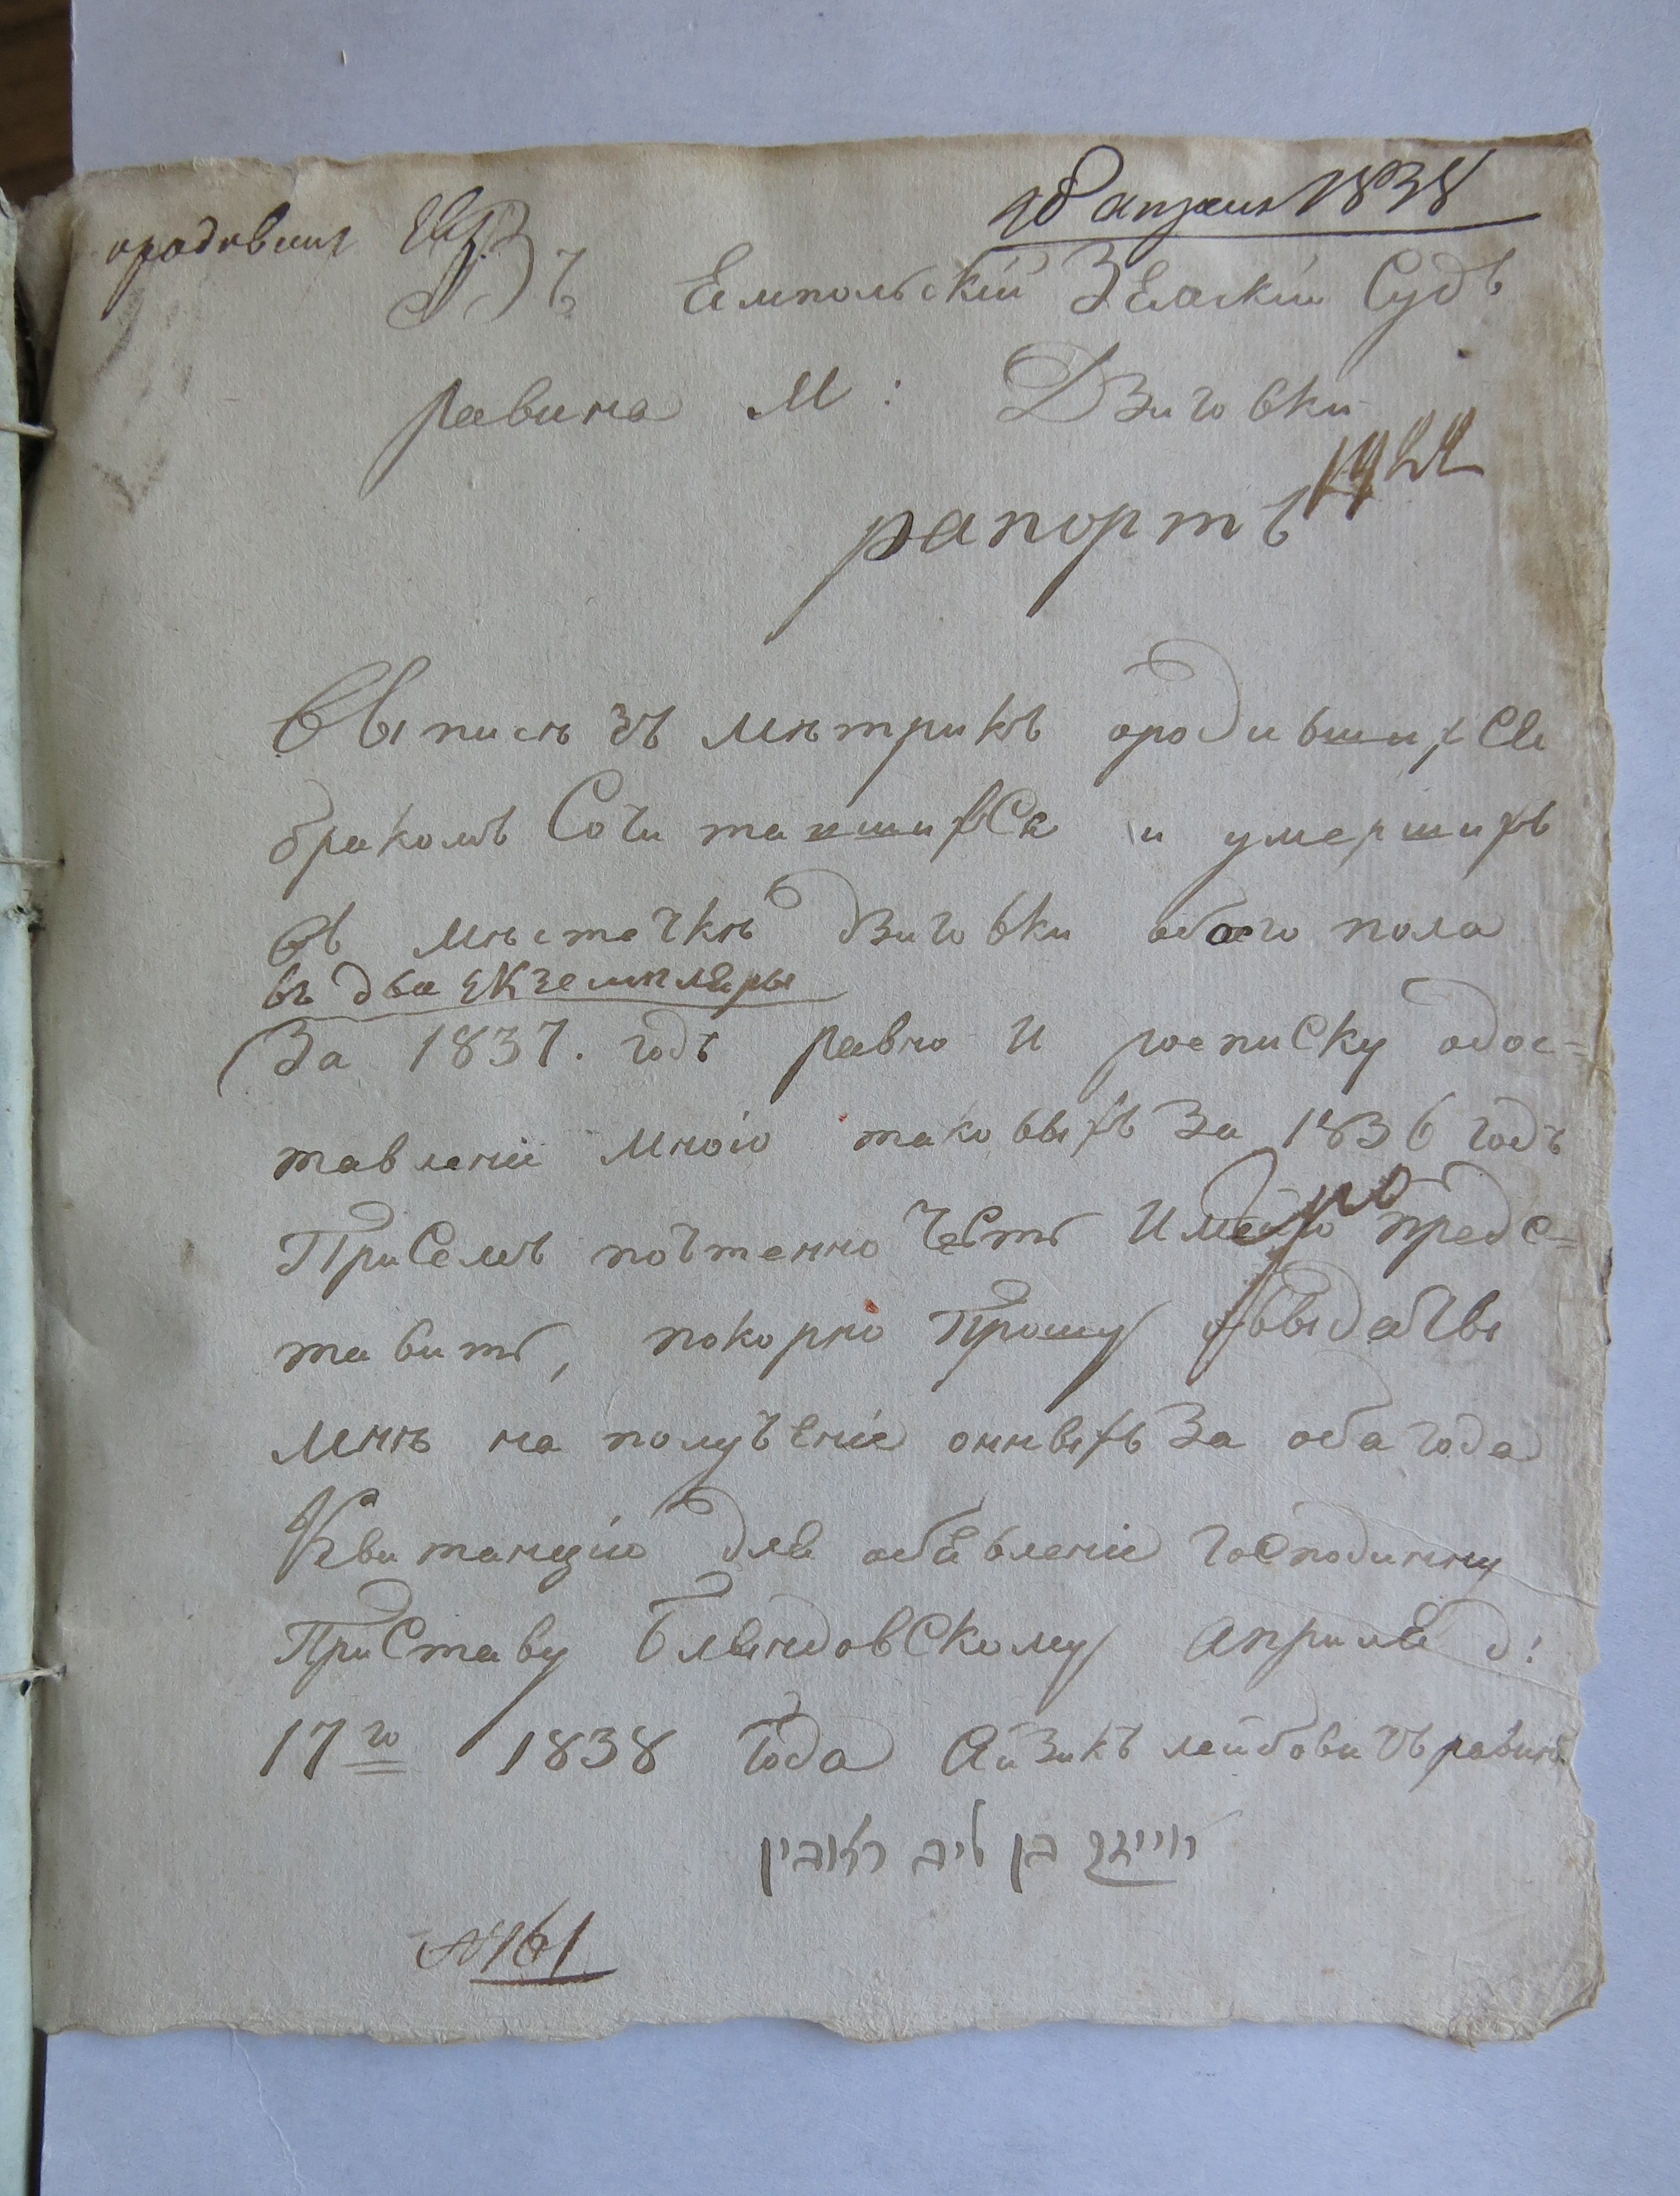 апреля 1838
Въ Емпольскій Земскій Судъ
равина М: Дзиговки
рапортъ
Выпись зъ мѣтрикѣ ородившихся
бракомъ Сочитавшихся и умершихъ
въ мѣстечкѣ дзиговки обоего пола
въ два екземпляры
За 1837. годъ равно и росписку одос=
тавленіи мною таковыхъ за 1836 годъ
При Семъ почтенно честь Имею предс=
тавить, покорно Прошу овыдачы
мнѣ на полученіе онныхъ За оба года
Квитанцію для обявленіе господинну
Приставу Бляндовскому априля д:
17го 1838 Года Айзикъ лейбовичъ равинъ
אייזיק בן ליב ראבין
№ 161